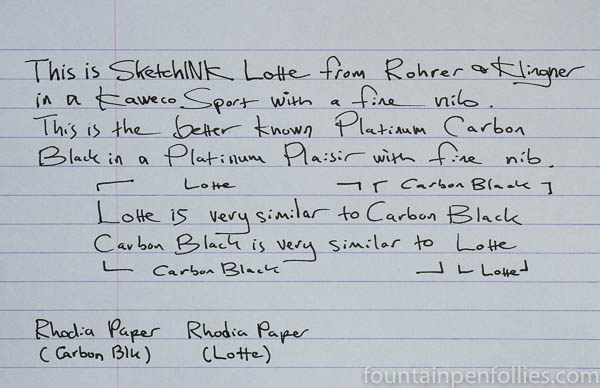 This is SketchINK Lotte from Rohrer & Klingner
in a Kaweco Sport with a fine nib.
This is the better known Platinum Carbon
Black in a Platinum Plaisir with fine nib.
Lotte Carbon Black
Lotte is very similar to Carbon Black
Carbon Black is very similar to Lotte
Carbon Black Lotte
Rhodia Paper Rhodia Paper
(Carbon Blk) (Lotte)
fountainpenfollies.com